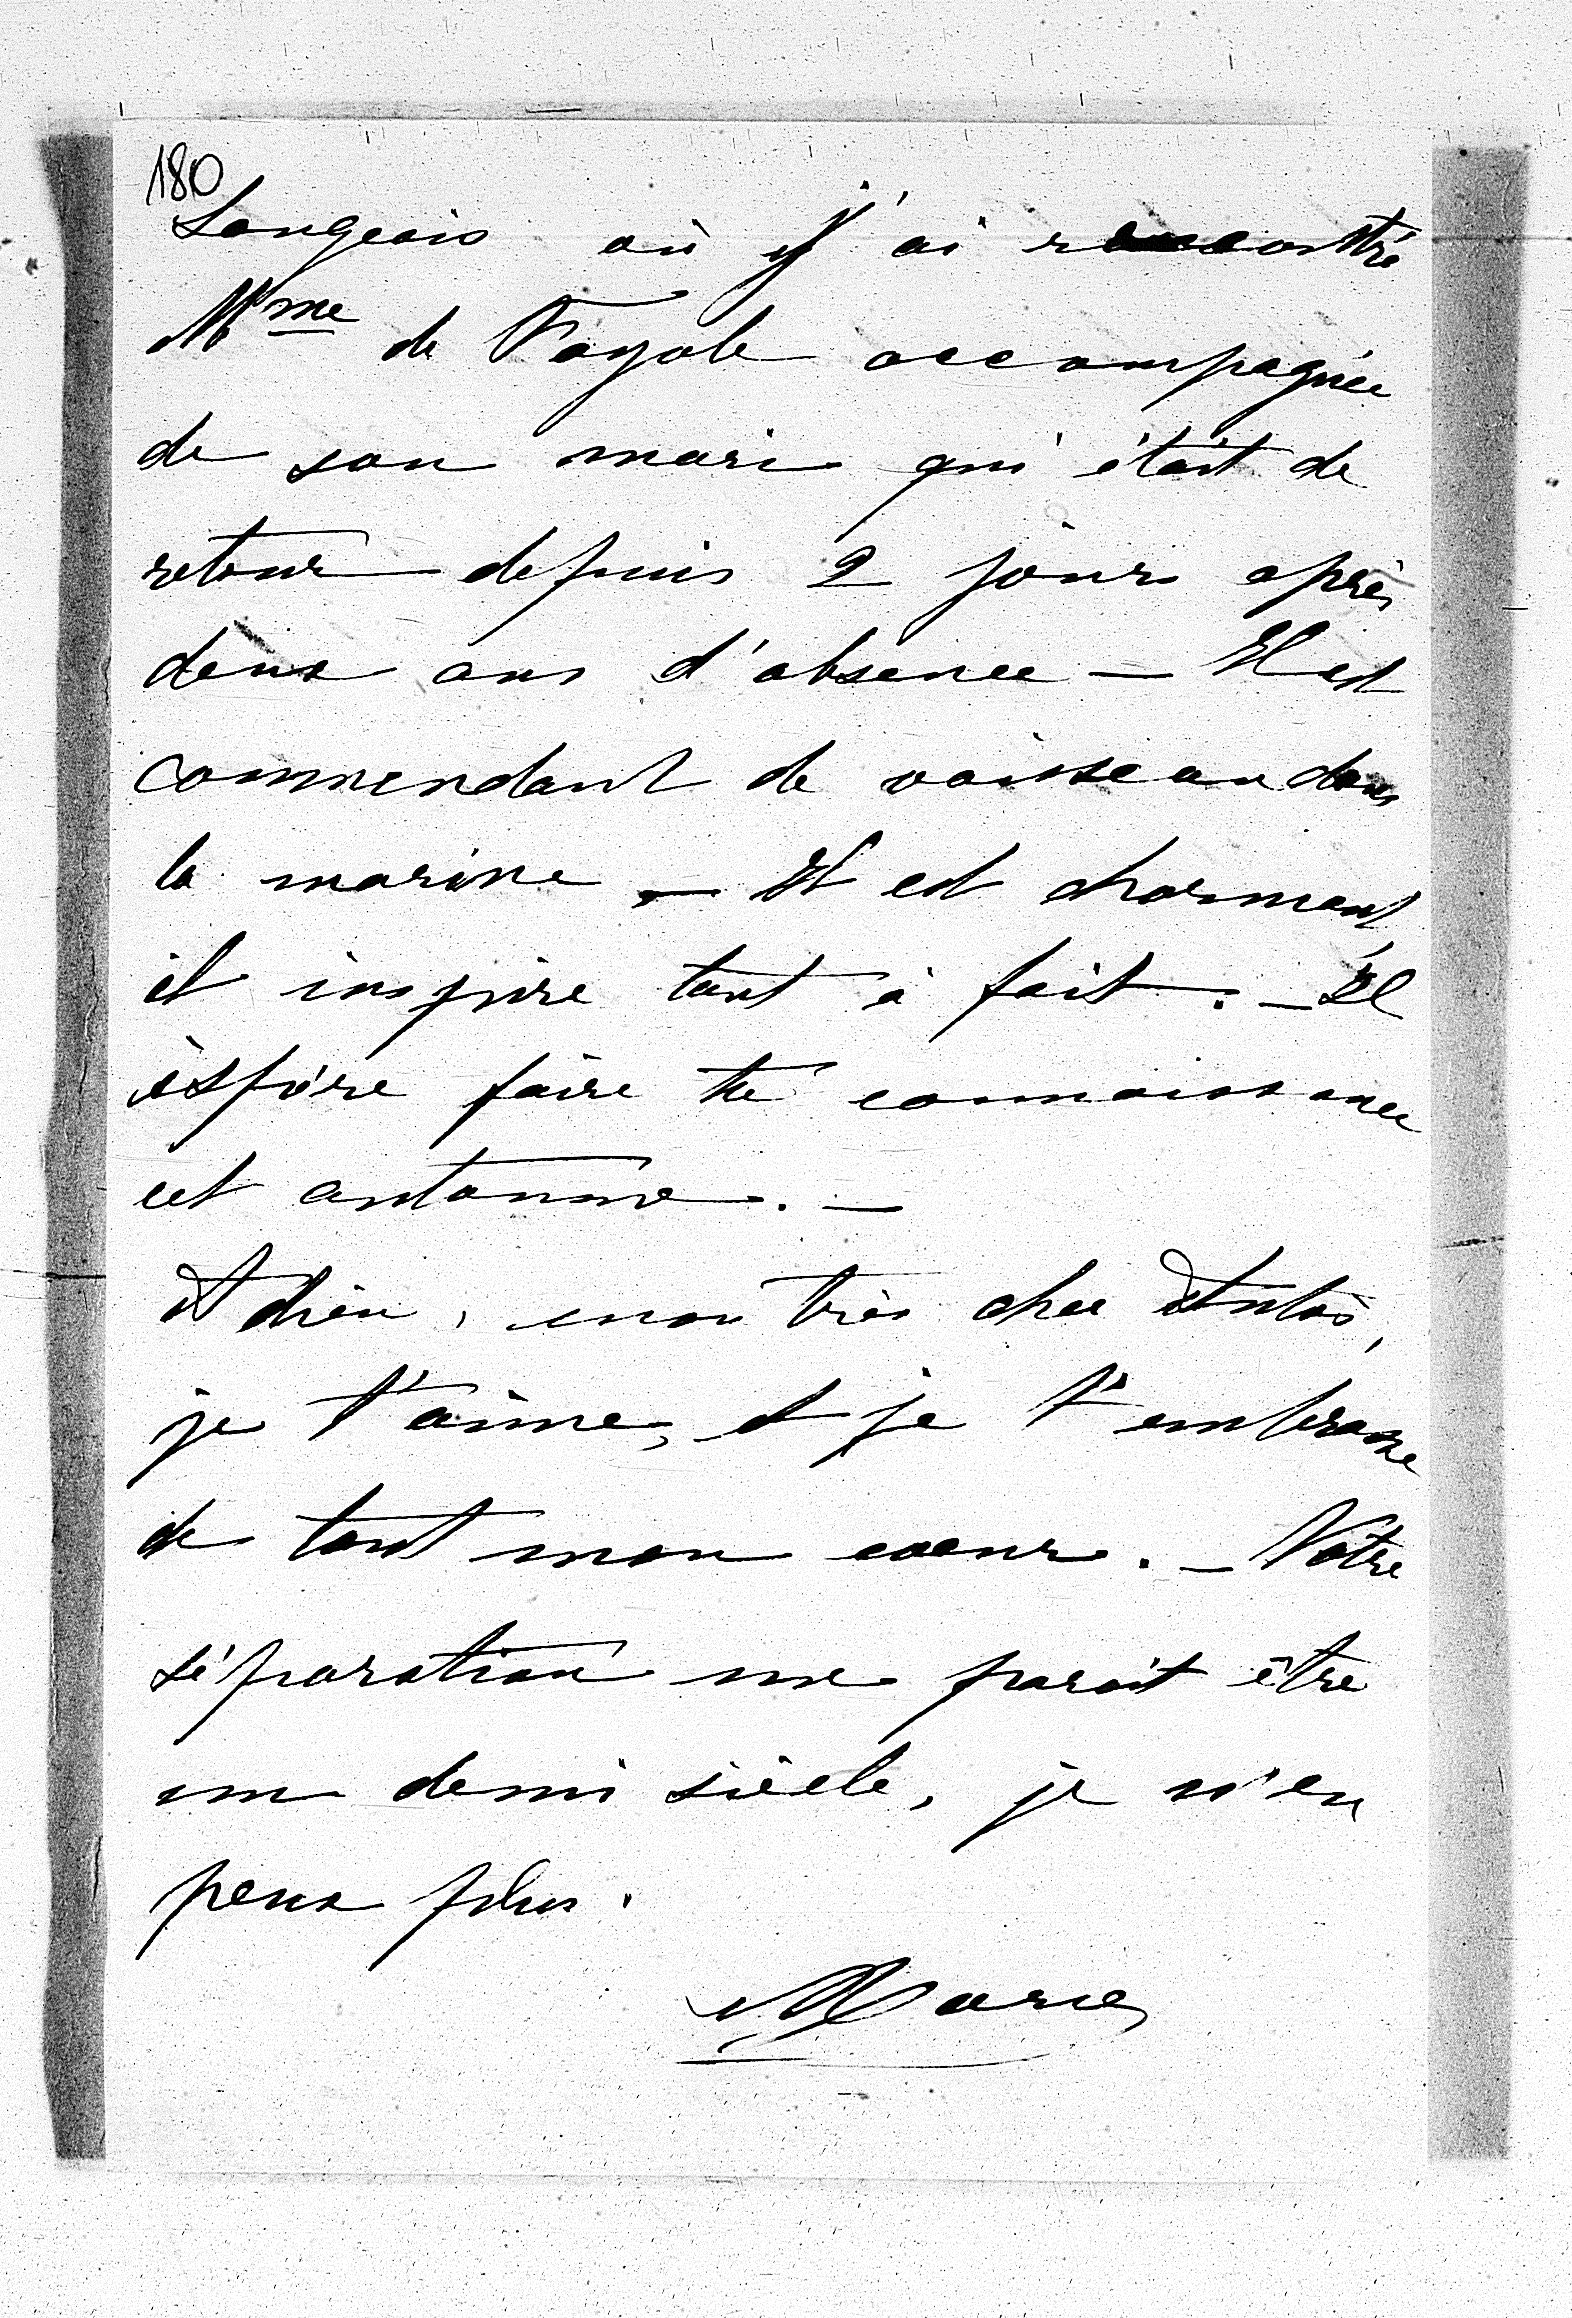 180
Langeais où j'ai rencontré
Mme de Fayole accompagnée
de son mari qui était de
retour depuis 2 jours après
deux ans d'absence — Il est
commendant de vaisseau dans
la marine — Il est charmant,
il inspire tout à fait. — Il
éspère faire te connaissance
cet automne. —
Adieu, mon très cher Antos,
je t'aime, et je t'embrasse
de tout mon coeur. — Votre
séparation me parait être
un demi siècle, je n'en
peux plus.
Marie